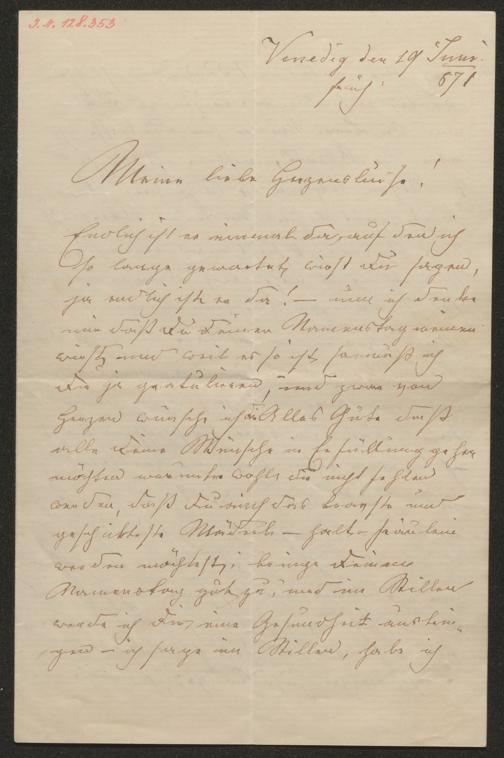 J.N. 128.353
Venedig den 19 Juni
früh. 871
Meine liebe Herzensluise!
Endlich ist er einmal da, auf den ich
so lange gewartet, wirst Du sagen,
ja endlich ist er da! — nun ich denke
mir daß Du Deinen Namenstag meinen
wirst, und weil es so ist, so muß ich
Dir ja gratuliren, und zwar von
Herzen wünsche ich Dir Alles Gute daß
alle Deine Wünsche in Erfüllung gehen
möchten worunter wohl der nicht fehlen
werden, daß Du auch das bravste und
geschickteste Mäderl — halt — Fräulein
werden möchtest; bringe Deinen
Namenstag gut zu, und im Stillen
werde ich Dir eine Gesundheit austrin-
gen — ich sage im Stillen, habe ich